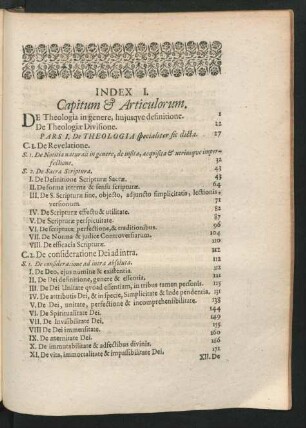 INDEX I.
Capitum & Articulorum.
DE Theologia in genere, hujusque definitione. 1
De Theologiæ Divisione. 12
PARS I. De THEOLOGIA specialiter sic dicta. 27
C. 1. De Revelatione.
S. 1. De Notitia naturali in genere, de insita, acquisita & utriusque imper-
fectione. 32
S. 2. De Sacra Scriptura. 43
I. De Definitione Scripturæ Sacræ. 43
II. De forma interna & sensu scripturæ. 64
III. De S. Scripturæ fine, objecto, adjuncto simplicitatis, lectionis
versionum. 71
IV. De Scripturæ effecto & utilitate. 82
V. De Scripturæ perspicuitate. 87
VI. De scripturæ perfectione, & traditionibus. 94
VII. De Norma & judice Controversiarum.
VIII. De efficacia Scripturæ.
C. 2. De consideratione Dei ad intra. 112
S. 1. De consideratione ad intra absoluta. 112
I. De Deo, ejus nomine & existentia.
II. De Dei definitione, genere & essentia.
III. De Dei Unitate quoad essentiam, in tribus tamen personis.
IV. De attributis Dei, & in specie, Simplicitate & Independentia. 131
V. De Dei, unitate, perfectione & incomprehensibilitate. 138
VI. De Spiritualitate Dei. 144
VII. De Invisibilitate Dei. 149
VIII De Dei immensitate.
IX. De æternitate Dei. 160
X. De immutabilitate & adfectibus divinis. 166
XI. De vita, immortalitate & impassibilitate Dei. 171
XII. De